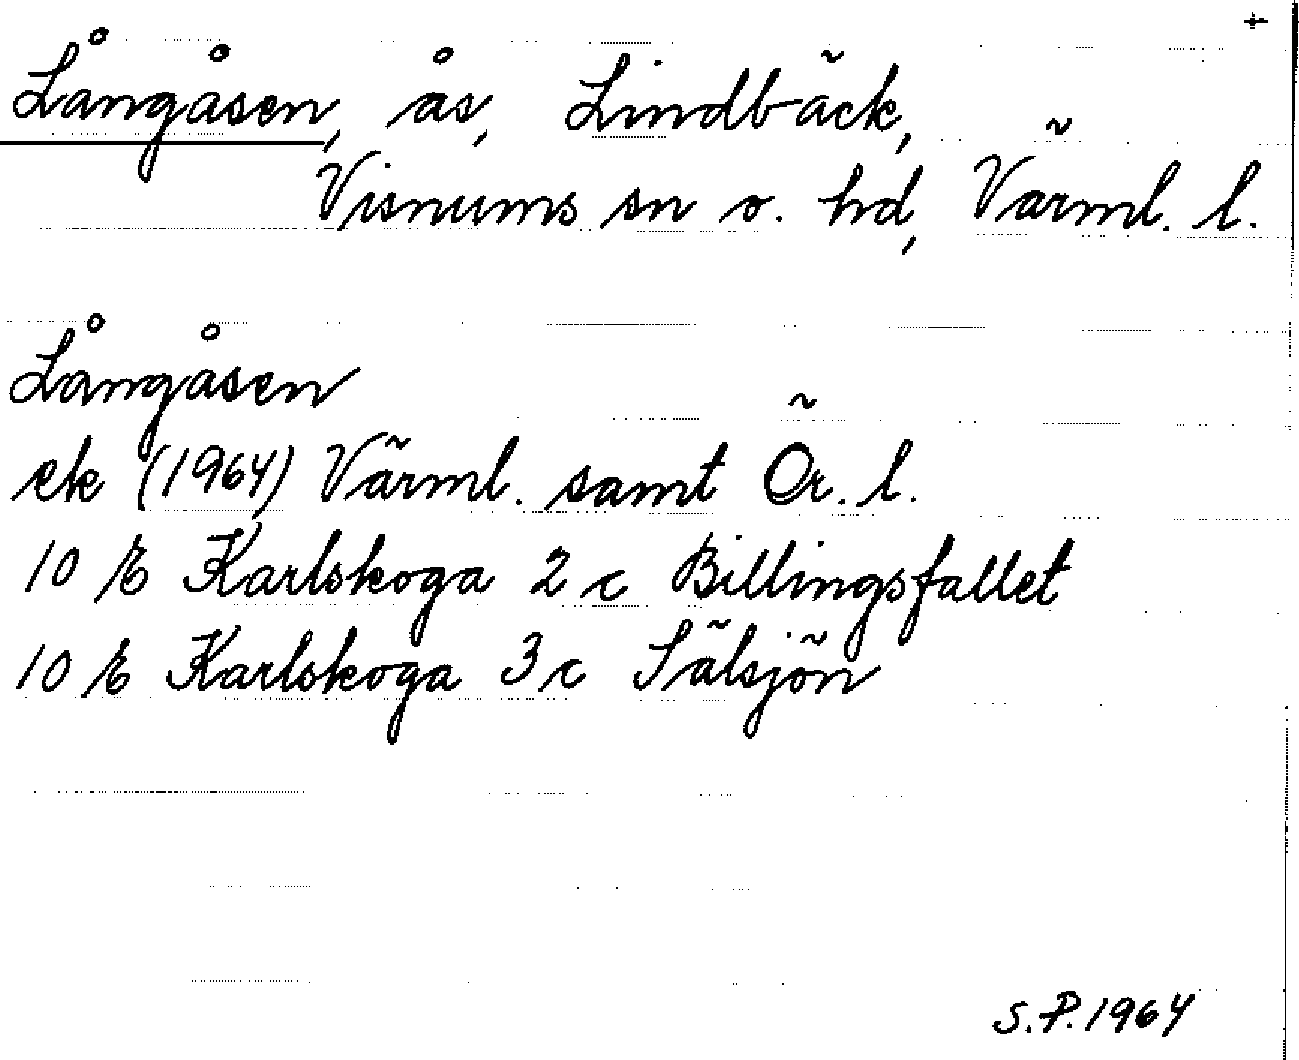 +
Långåsen, ås, Lindbäck,
Visnums sn o. hd, Värml. l.
Långåsen
ek (1964) Värml. samt Ör. l.
10 E Karlskoga 2 c Billingsfallet
10 E Karlskoga 3 c Sälsjön
S.P. 1964